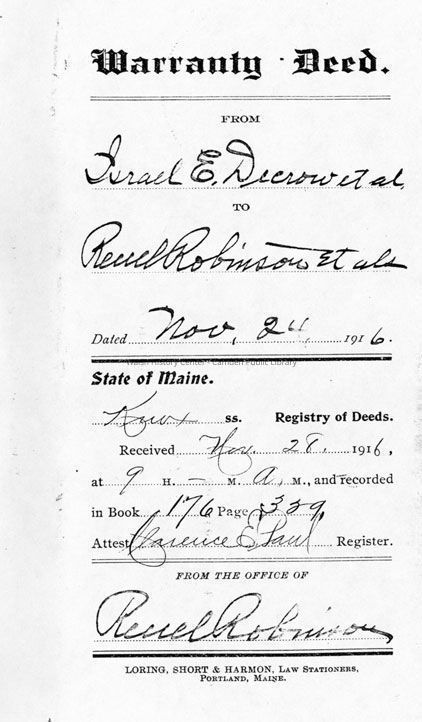 Warranty Deed.
FROM
Israel E. Decrow et al
TO
Reuel Robinson et als
Dated Nov. 24, 1916.
Walsh History Center - Camden Public Library
State of Maine.
Knox ss. Registry of Deeds.
Received Nov. 28. 1916,
at 9 H. — M. A. M., and recorded
in Book 176 Page 339,
Attest Clarence E. Paul Register.
FROM THE OFFICE OF
Reuel Robinson
LORING, SHORT & HARMON, LAW STATIONERS,
PORTLAND, MAINE.